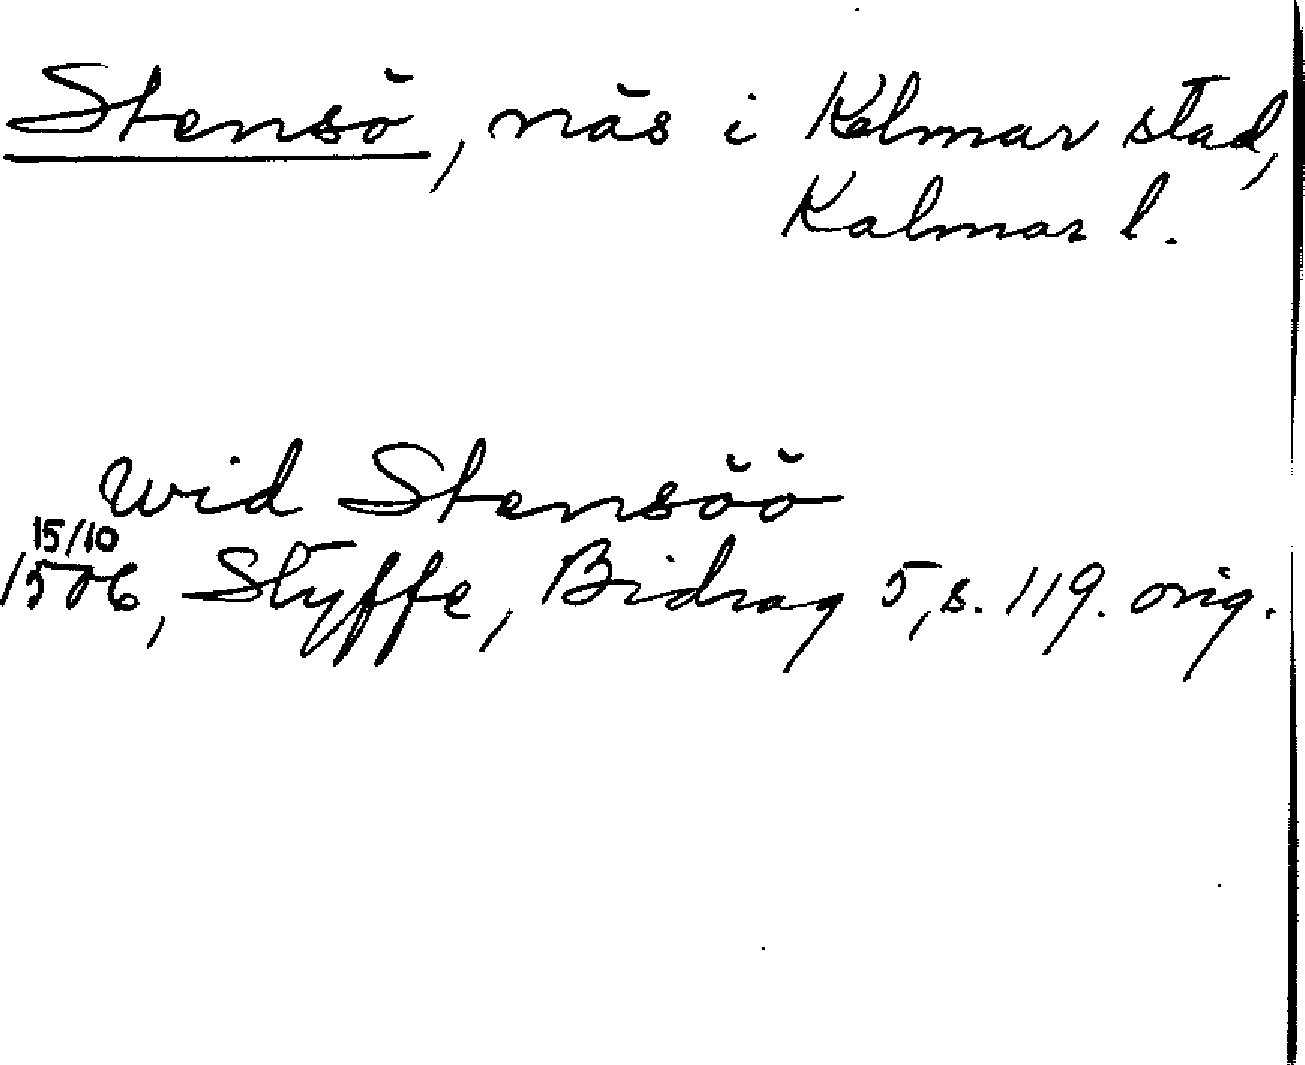 Stensö, näs i Kalmar stad,
Kalmar l.
wid Stensöö
15/10
1506, Styffe, Bidrag 5, s. 119. orig.